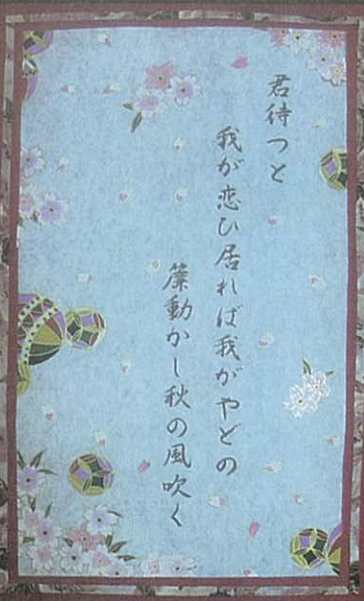 君待つと
我が恋ひ居れば我がやどの
簾動かし秋の風吹く